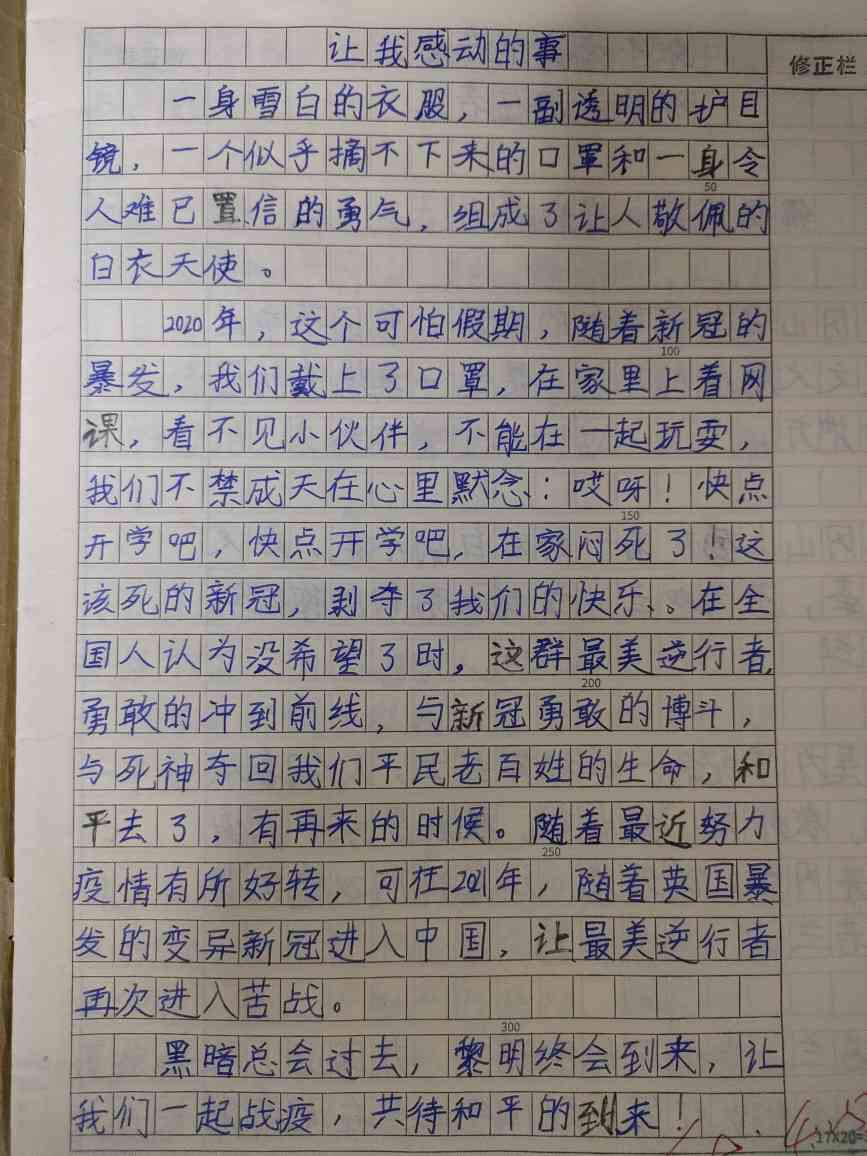 让我感动的事
修正栏
一身雪白的衣服，一副透明的护目
镜，一个似乎摘不下来的口罩和一身令
50
人难已置信的勇气，组成了让人敬佩的
白衣天使。
2020年，这个可怕假期，随着新冠的
100
暴发，我们戴上了口罩，在家里上着网
课，看不见小伙伴，不能在一起玩耍，
我们不禁成天在心里默念：哎呀！快点
150
开学吧，快点开学吧，在家闷死了！这
该死的新冠，剥夺了我们的快乐、。在全
国人认为没希望了时，这群最美逆行者，
200
勇敢的冲到前线，与新冠勇敢的博斗，
与死神夺回我们平民老百姓的生命，和
平去了，有再来的时候。随着最近努力
250
疫情有所好转，可在2021年，随着英国暴
发的变异新冠进入中国，让最美逆行者
再次进入苦战。
300
黑暗总会过去，黎明终会到来，让
我们一起战疫，共待和平的到来！
17X20=